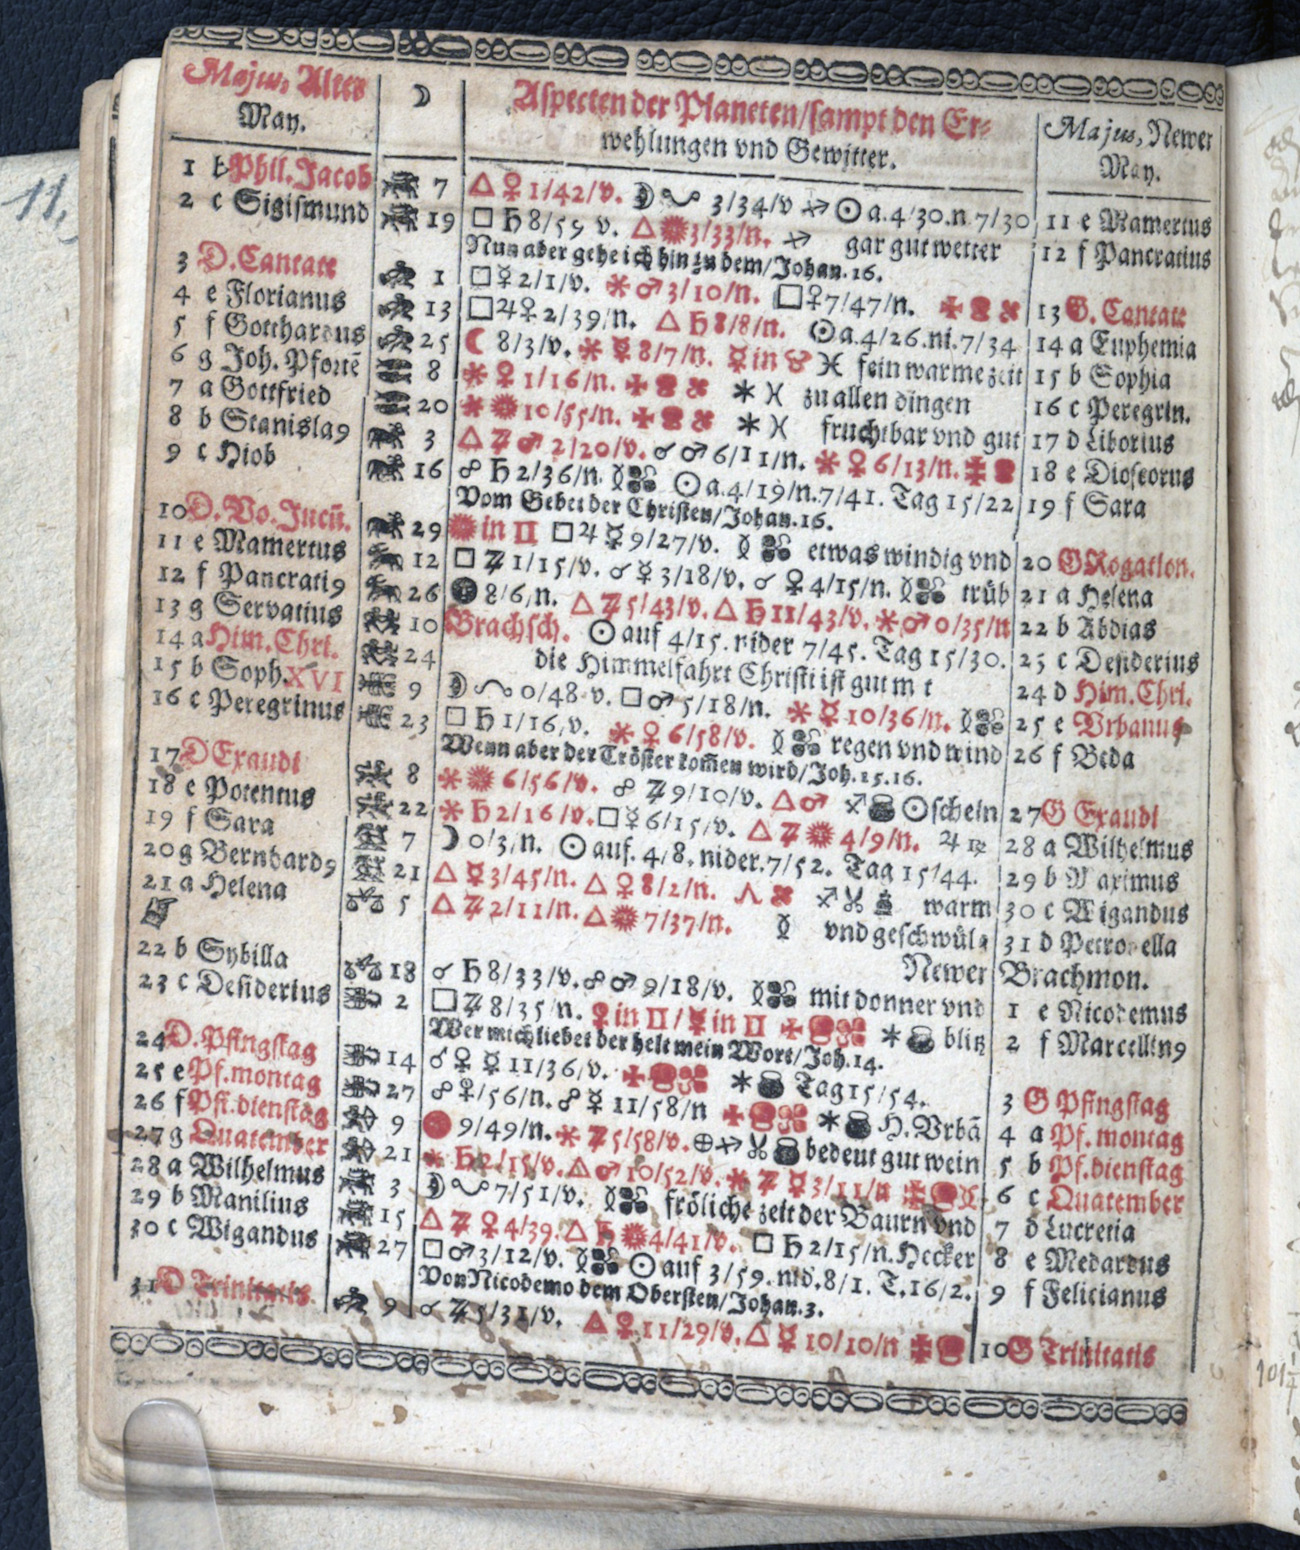 Majus, Altes May.
☽
Aspecten der Planeten/sampt den Er-
wehlungen vnd Gewitter.
Majus, Newer May.
1 b Phil. Jacob 7 △ ♀ 1/42/v. 3/34/v ☉ a.4/30.n 7/30 11 e Mamertus
2 c Sigismund 19 □ ♄ 8/59 v. △ 3/33/n. gar gut wetter 12 f Pancratius
Nun aber gehe ich hin zu dem/Johan.16.
3 D. Cantate 1 □ ☿ 2/1/v. ✶ ♂ 3/10/n. □ ♀ 7/47/n. 13 G. Cantate
4 e Florianus 13 □ ♃ ♀ 2/39/n. △ ♄ 8/8/n. ☉ a.4/26.ni.7/34 14 a Euphemia
5 f Gotthardus 25 ☾ 8/3/v. ✶ ☿ 8/7/n. ☿ in ♉ ♓ fein warme zeit 15 b Sophia
6 g Joh. Pfortē 8 ✶ ♀ 1/16/n. ✶ ♓ zu allen dingen 16 c Peregrin.
7 a Gottfried 20 ✶ 10/55/n. ✶ ♓ fruchtbar vnd gut 17 d Liborius
8 b Stanisla9 3 △ ♃ ♂ 2/20/v. ☌ ♂ 6/11/n. ✶ ♀ 6/13/n. 18 e Dioscorus
9 c Hiob 16 ☍ ♄ 2/36/n. ☉ a.4/19/n.7/41. Tag 15/22 19 f Sara
Vom Gebet der Christen/Johan.16.
10 D. Vo. Jucū. 29 in ♊ □ ♃ ☿ 9/27/v. etwas windig vnd 20 G Rogation.
11 e Mamertus 12 □ ♃ 1/15/v. ☌ ☿ 3/18/v. ☌ ♀ 4/15/n. trüb 21 a Helena
12 f Pancrati9 26 8/6/n. △ ♃ 5/43/v. △ ♄ 11/43/v. ✶ ♂ 0/35/n 22 b Abdias
13 g Servatius 10 Brachsch. ☉ auf 4/15. nider 7/45. Tag 15/30. 23 c Desiderius
14 a Him. Chri. 24 die Himmelfahrt Christi ist gut m t 24 d Him. Chri.
15 b Soph. XVI 9 0/48 v. □ ♂ 5/18/n. ✶ ☿ 10/36/n. 25 e Vrbanus
16 c Peregrinus 23 □ ♄ 1/16/v. ✶ ♀ 6/58/v. regen vnd wind 26 f Beda
Wenn aber der Tröster kom̄en wird/Joh.15.16.
17 D Exaudi 8 ✶ 6/56/v. ☍ ♃ 9/10/v. △ ♂ ♐ ☉schein 27 G Exaudi
18 e Potentus 22 ✶ ♄ 2/16/v. □ ☿ 6/15/v. △ ♃ 4/9/n. ♃ 28 a Wilhelmus
19 f Sara 7 ☽ 0/3/n. ☉ auf. 4/8. nider.7/52. Tag 15/44. 29 b Maximus
20 g Bernhard9 21 △ ☿ 3/45/n. △ ♀ 8/2/n. ♐ warm 30 c Wigandus
21 a Helena 5 △ ♃ 2/11/n. △ 7/37/n. vnd geschwül 31 d Petronella
Newer Brachmon.
22 b Sybilla 18 ☌ ♄ 8/33/v. ☍ ♂ 9/18/v. mit donner vnd 1 e Nicodemus
23 c Desiderius 2 □ ♃ 8/35/n. ♀ in ♊ / ☿ in ♊ ✶ blitz 2 f Marcellin9
Wer mich liebet der helt mein Wort/Joh.14.
24 D. Pfingstag 14 ☌ ♀ ☿ 11/36/v. ✶ Tag 15/54. 3 G Pfingstag
25 e Pf. montag 27 ☍ ♀/56/n. ☍ ☿ 11/58/n ✶ H. Vrbā 4 a Pf. montag
26 f Pfi. dienstag 9 9/49/n. ✶ ♃ 5/58/v. bedeut gut wein 5 b Pf. dienstag
27 g Quatember 21 ✶ ♄ 2/15/v. △ ♂ 10/52/v. ✶ ♃ ☿ 3/11/n 6 c Quatember
28 a Wilhelmus 3 7/51/v. fröliche zeit der Baurn vnd 7 d Lucretia
29 b Manilius 15 △ ♃ ♀ 4/39. △ ♄ 4/41/v. □ ♄ 2/15/n. Hecker 8 e Medardus
30 c Wigandus 27 □ ♂ 3/12/v. ☉ auf 3/59. nid.8/1. T.16/2. 9 f Felicianus
Von Nicodemo dem Obersten/Johan.3.
31 D Trinitatis 9 ☌ ♃ 5/31/v. △ ♀ 11/29/v. △ ☿ 10/10/n 10 G Trinitatis
11.